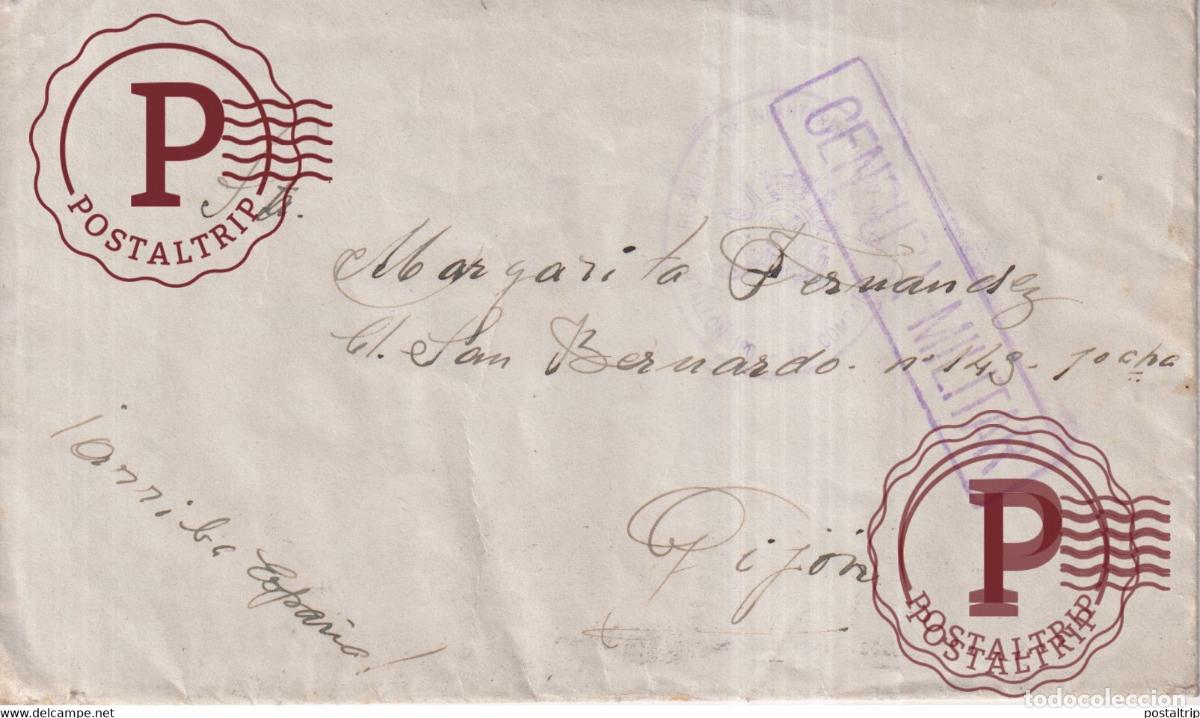 POSTALTRIP
Srta.
Margarita Fernandez
Cl. San Bernardo. nº 149- 1º dcha
¡arriba España!
Gijón
CENSURA MILITAR
POSTALTRIP
todocoleccion
www.delcampe.net
postaltrip